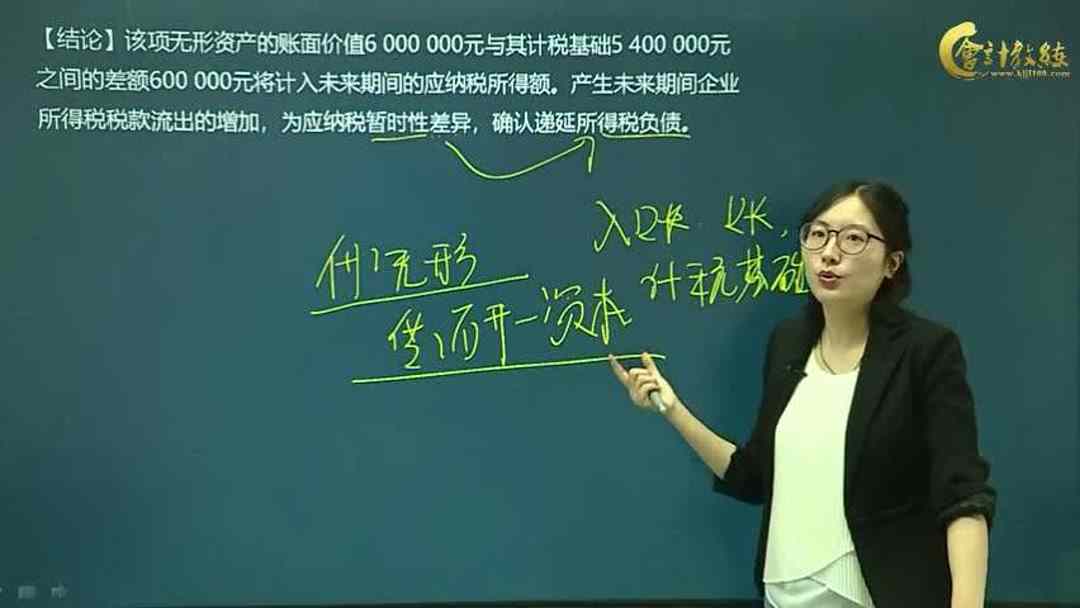 【结论】该项无形资产的账面价值6 000 000元与其计税基础5 400 000元
之间的差额600 000元将计入未来期间的应纳税所得额。产生未来期间企业
所得税税款流出的增加，为应纳税暂时性差异，确认递延所得税负债。
會計教練
www.kjjl100.com
计税基础
无形
资本